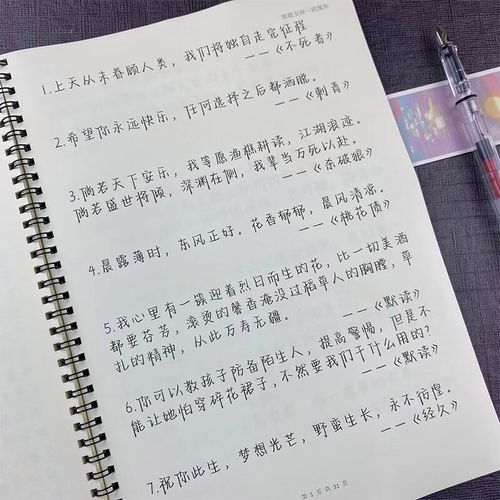 1.上天从未眷顾人类，我们将独自走完征程
——《不死者》
2.希望你永远快乐，任何选择之后都洒脱。
——《刺青》
3.倘若天下安乐，我等愿渔樵耕读，江湖浪迹。
倘若盛世将倾，深渊在侧，我辈当万死以赴。
——《杀破狼》
4.晨露薄时，东风正好。花香郁郁，晨风清凉。
——《桃花债》
5.我心里有一簇迎着烈日而生的花，比一切美酒
都要芬芳，滚烫的馨香淹没过稻草人的胸膛，草
扎的精神，从此万寿无疆。
——《默读》
6.你可以教孩子防备陌生人，提高警惕，但是不
能让她怕穿碎花裙子，不然要我们干什么用的？
——《默读》
7.祝你此生，梦想光芒，野蛮生长，永不彷徨。
——《经久》
第 1 页 共 31 页